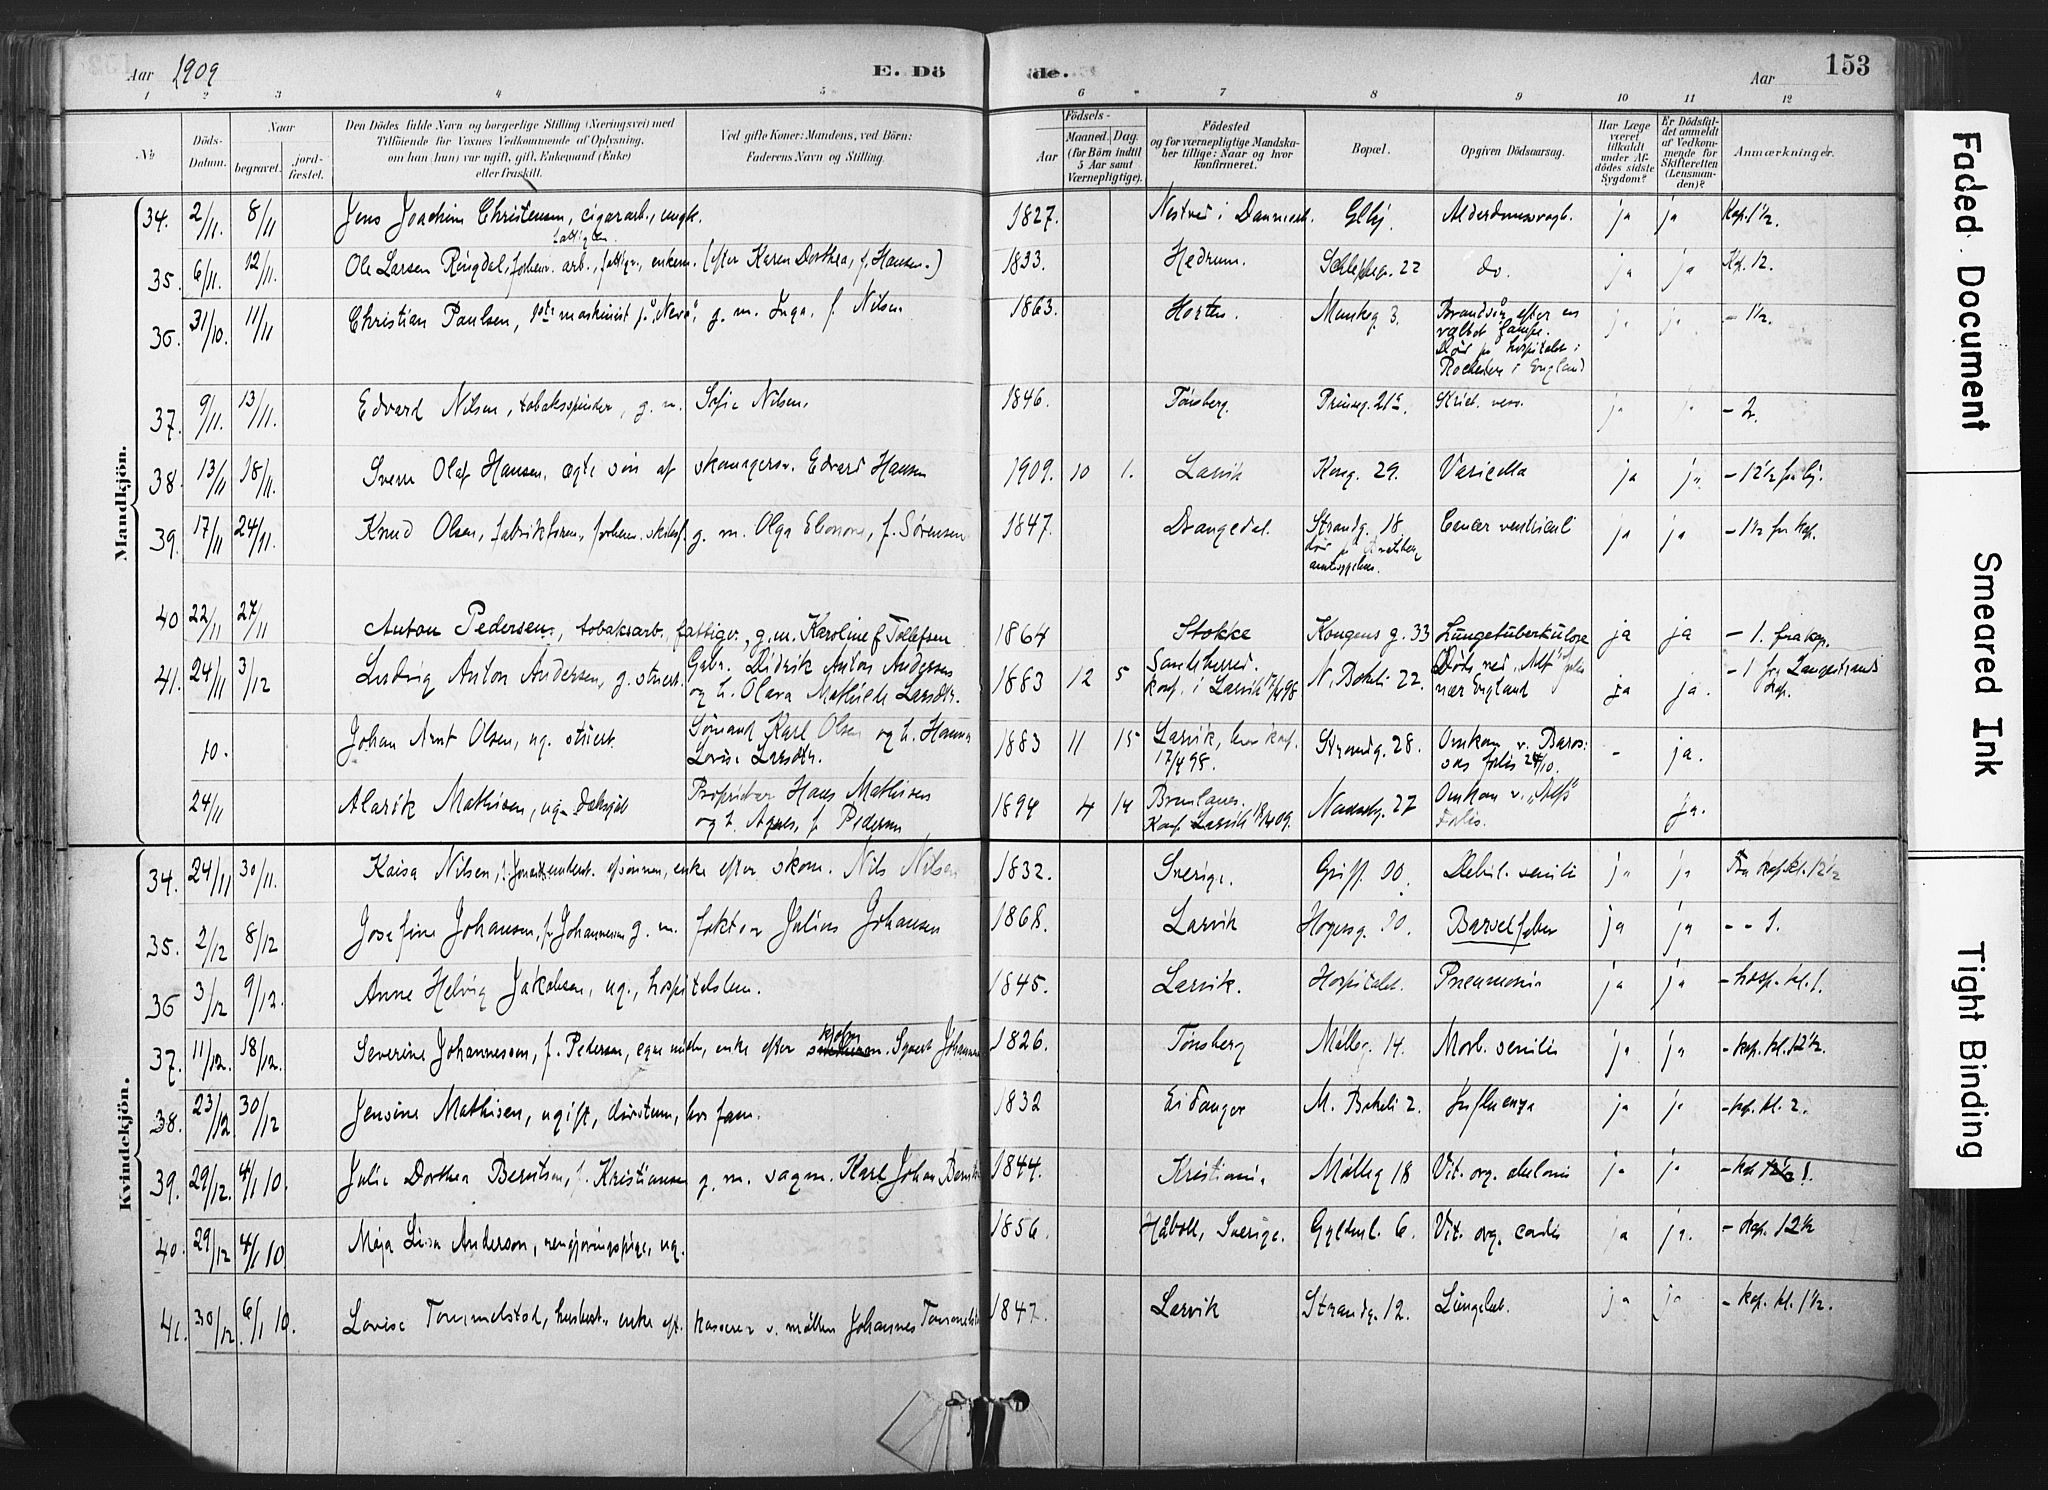 Aar 1909 E. Dö de. Aar 153
1 2 3 4 5 6 7 8 9 10 11 12
No
Döds-Datum.
Naar
begravet.
jord-fæstet.
Den Dödes fulde Navn og borgerlige Stilling (Næringsvei) med
Tilföiende for Voxnes Vedkommende af Oplysning,
om han (hun) var ugift, gift, Enkemand (Enke)
eller fraskilt.
Ved gifte Koner: Mandens, ved Börn:
Faderens Navn og Stilling.
Födsels-
Aar
Maaned. Dag.
(for Börn indtil
5 Aar samt
Værnepligtige).
Födested
og for værnepligtige Mandska-
ber tillige: Naar og hvor
konfirmeret.
Bopæl.
Opgiven Dödsaarsag.
Har Læge
været
tilkaldt
under Af-
dödes sidste
Sygdom?
Er Dödsfal-
det anmeldt
af Vedkom-
mende for
Skifteretten
(Lensman-
den)?
Anmærkninger.
Mandkjön.
34. 2/11. 8/11 Jens Joachim Christensen, cigararb., ungk. 1827. Nestved i Danmark. Glby. ja ja Kap. 1½.
35. 6/11. 12/11. Ole Larsen Ringdal, forhenv. arb., fattigv., enkem. (efter Karen Dorthea, f. Hansen.) 1833. Hedrum. 22 do. ja ja Kap. 12.
36. 31/10. 11/11 Christian Paulsen, maskinist på g. m. Inga, f. Nilsen 1863. Horten Munkeg. 3. Brandsår efter en
væltet lampe.
Död på hospitalet i
Rochester i England ja ja - 1½.
37. 9/11. 13/11. Edvard Nilsen, tobaksspinder, g. m. Sofie Nilsen. 1846. Tönsberg. Prinseg. 21 ja ja - 2.
38. 13/11 18/11. Sverre Olaf Hansen, ægte sön af Edvard Hansen 1909. 10 1. Larvik Kong. 29. Varicella ja ja. - 12½
39. 17/11 24/11. Knud Olsen, forhenv. g. m. Olga f. Sörensen 1847. Drangedal. Strandg. 18,
död på
Cancer ventriculi ja ja - 1½ fr. kap.
40 22/11 27/11 Anton Pedersen, tobaksarb., fattigv., g. m. Karoline f. Tollefsen 1864 Stokke Kongens g. 33 Lungetuberkulose ja ja - 1. fra kap.
41. 24/11 3/12 Ludvig Anton Andersen, g. stuert. Didrik Anton Andersen
og h. Olava Mathilde Larsdtr. 1883 12 5 Sandeherred.
konf. i Larvik 17/4 98 N. Bökeli 22. Döde ved "Alf"s forlis
nær England ja ja. - 1 fr. Langestrands
kap.
10. Johan Arnt Olsen, ug. stuert. Sömand Karl Olsen og h. Hanna
Lovise Larsdtr. 1883 11 15 Larvik, konf.
17/4 98. Strandg. 28. Omkom v. Baros-
sas forlis 28/10. - ja.
24/11 Alarik Mathisen, ug. Proprietær Hans Mathisen
og h. Agnes, f. Pedersen 1894 4 14 Brunlanes.
Konf. Larvik 18/4 09. 27 Omkom v. "Alfs"
Forlis. ja.
Kvindekjön.
34. 24/11 30/11. Kaisa Nilsen, enke efter skom. Nils Nilsen 1832. Sverige. Griff. 90. Debil. senilis ja ja Fra kap. kl. 12½
35. 2/12 8/12 Josefine Johansen, f. Johannesen g. m. faktor Julius Johansen 1868. Larvik Hegersg. 90. Barselfeber ja ja - - 1.
36 3/12 9/12. Anne Helvig Jakobsen, ug., hospitalslem. 1845. Larvik. Hospitalet. Pneumonia ja ja - hosp. kl. 1.
37. 11/12. 18/12. Severine Johannessen, f. Pedersen, egne midler, enke efter Syvert Johanne 1826. Tönsberg Mölleg. 14. Morb. senilis ja ja - kap. kl. 12½.
38. 23/12 30/12 Jensine Mathisen, ugift, hos fam. 1832 Eidanger M. Bökeli 2. Influenza ja ja - kap. kl. 2.
39. 29/12. 4/1 10. Julie Dorthea Berntsen, f. Kristiansen g. m. sagm. Karl Johan Berntsen 1844. Kristiania Mölleg 18 Vit. org. ja ja - 1.
40. 29/12 4/1 10 Maja Lisa Anderson, rengjöringspige, ug. 1856. Håboll, Sverige. Gyldenl. 6. Vit. org. cordis ja ja. - kap. 12½
41. 30/12. 6/1 10. Lovise Tommelstad, husbest., enke eft. kasserer v. möllen Johannes Tommelstad 1847. Larvik Strandg. 12. Lungetub. ja ja - kap. kl. 1½.
Faded Document
Smeared Ink
Tight Binding